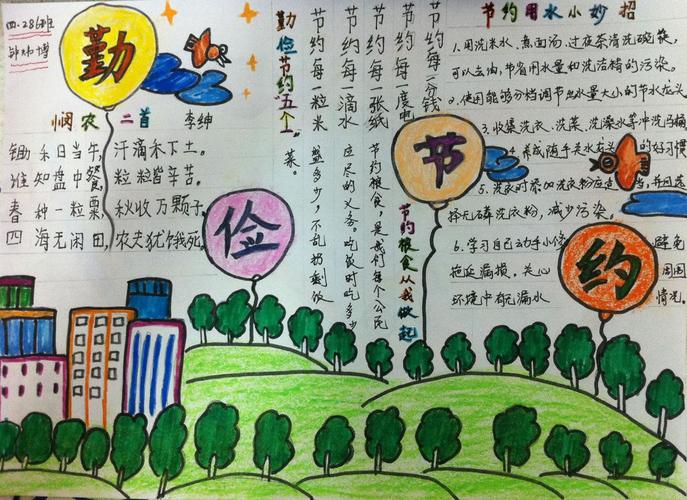 四.286班
勤
悯农二首 李绅
锄禾日当午,汗滴禾下土。
谁知盘中餐,粒粒皆辛苦。
春种一粒粟,秋收万颗子。
四海无闲田,农夫犹饿死。
俭
勤俭节约五个一
节约每一粒米
节约每一滴水
节约每一张纸
节约每一度电
节约每一分钱
节约粮食,是我们每个公民
应尽的义务。吃饭时吃多少
盛多少,不乱扔剩饭
菜。
节约粮食从我做起
节
节约用水小妙招
1.用洗米水、煮面汤、过夜茶清洗碗筷,
可以去油,节省用水量和洗洁精的污染。
2.使用能够分档调节出水量大小的节水龙头
3.收集洗衣、洗菜、洗澡水等冲洗马桶
4.养成随手关水龙头的好习惯
5.洗衣时添加洗衣粉应适当,并且选
择无磷洗衣粉,减少污染。
6.学习自己动手小修 避免
拖延漏损。关心 周围
环境中有无漏水 情况。
约